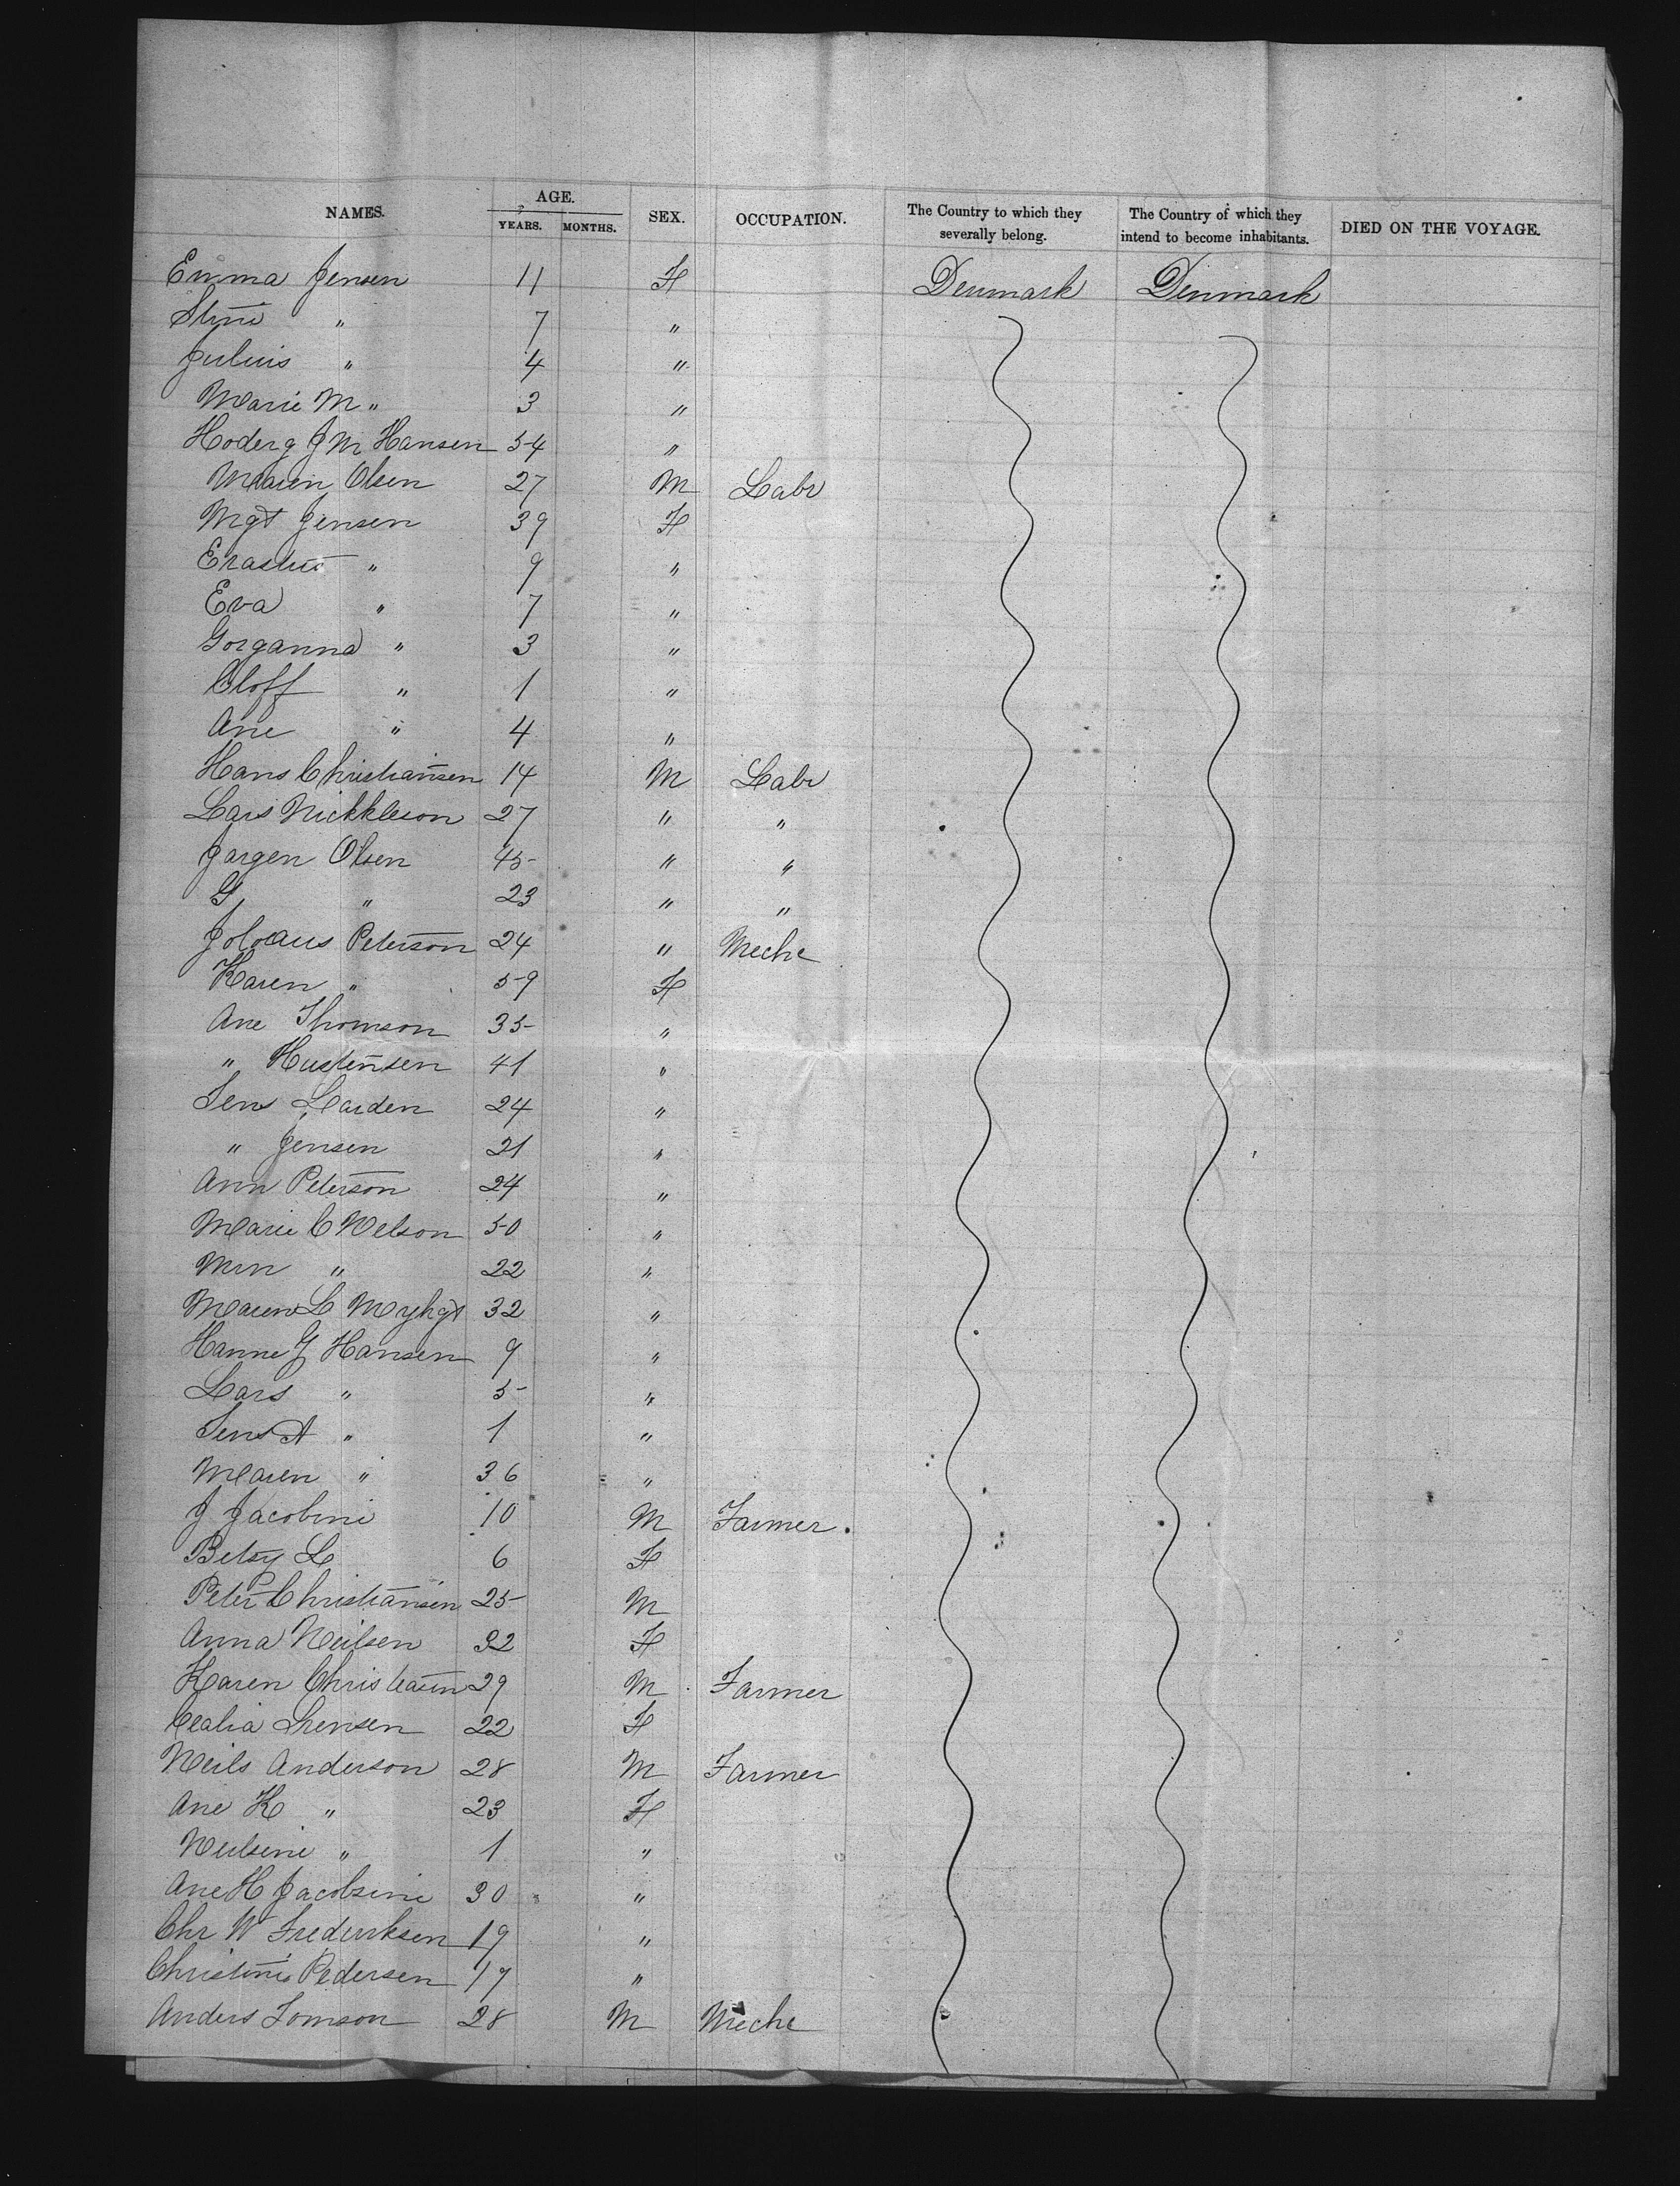 NAMES. AGE. YEARS. MONTHS. SEX. OCCUPATION. The Country to which they severally belong. The Country of which they intend to become inhabitants. DIED ON THE VOYAGE.
Emma Jensen 11 F Denmark Denmark
Stine " 7 "
Julius " 4 "
Marie M " 3 "
Hoderg J M Hansen 54 "
Maren Olsen 27 M Labr
Mgt Jensen 39 F
Erastus " 9 "
Eva " 7 "
Gorganna " 3 "
Oloff " 1 "
Ane " 4 "
Hans Christiansen 14 M Labr
Lars Nickkleson 27 " "
Jargen Olsen 45 " "
G " 23 " "
Peterson 24 " Mechc
Karen " 59 F
Ane Thomson 35 "
" Hustensen 41 "
Jens Larden 24 "
" Jensen 21 "
Ann Peterson 24 "
Marie C Nelson 50 "
Mrn " 22 "
Maren L 32 "
Hanne J Hansen 9 "
Lars " 5 "
Jens A " 1 "
Maren " 36 "
J Jacobini 10 M Farmer.
Betsy L 6 F
Peter Christiansen 25 M
Anna Neilsen 32 F
Karen 29 M Farmer
Cealia 22 F
Neils Anderson 28 M Farmer
Ane K " 23 F
Neilsine " 1 "
Ane H Jacobsine 30 "
Chr W Frederiksen 19 "
Christine Pedersen 17 "
Anders Tomson 28 M Mechc